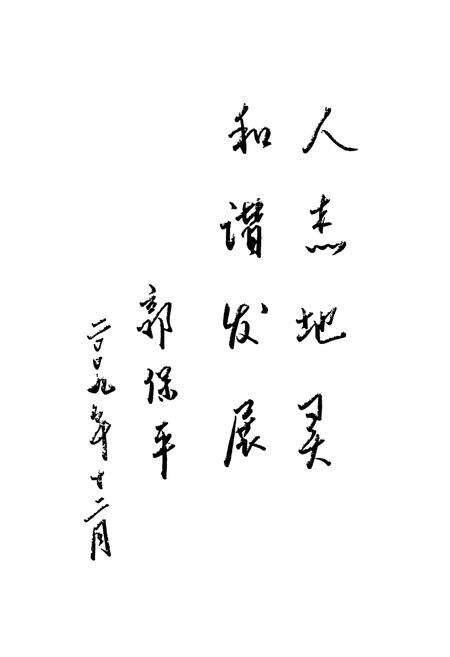 人杰地灵
和谐发展
郭保平
二〇〇九年十二月